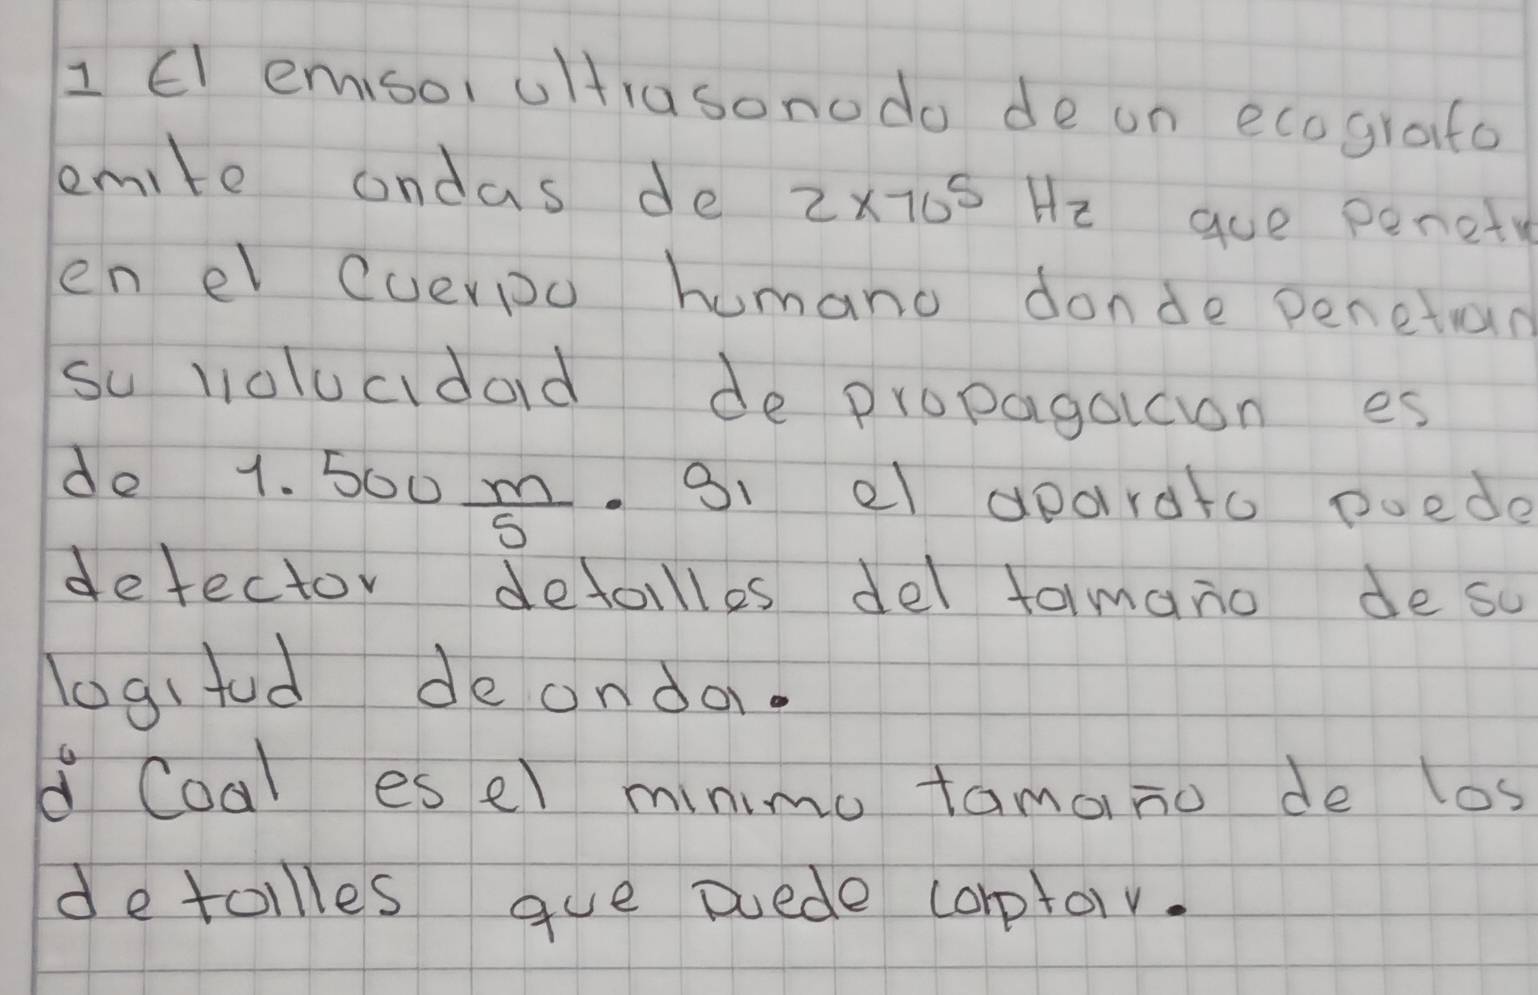 1 El emisor ultrasonodo de un ecografo
emite ondas de 2x10⁵ Hz que penetr
en el cuerpo humano donde penetran
su volucidad de propagacion es
de 1.500 m/s. Si el aparato puede
detector detalles del tamaño de su
logitud de onda.
¿ Coal es el minimo tamaño de los
detalles que puede captar.